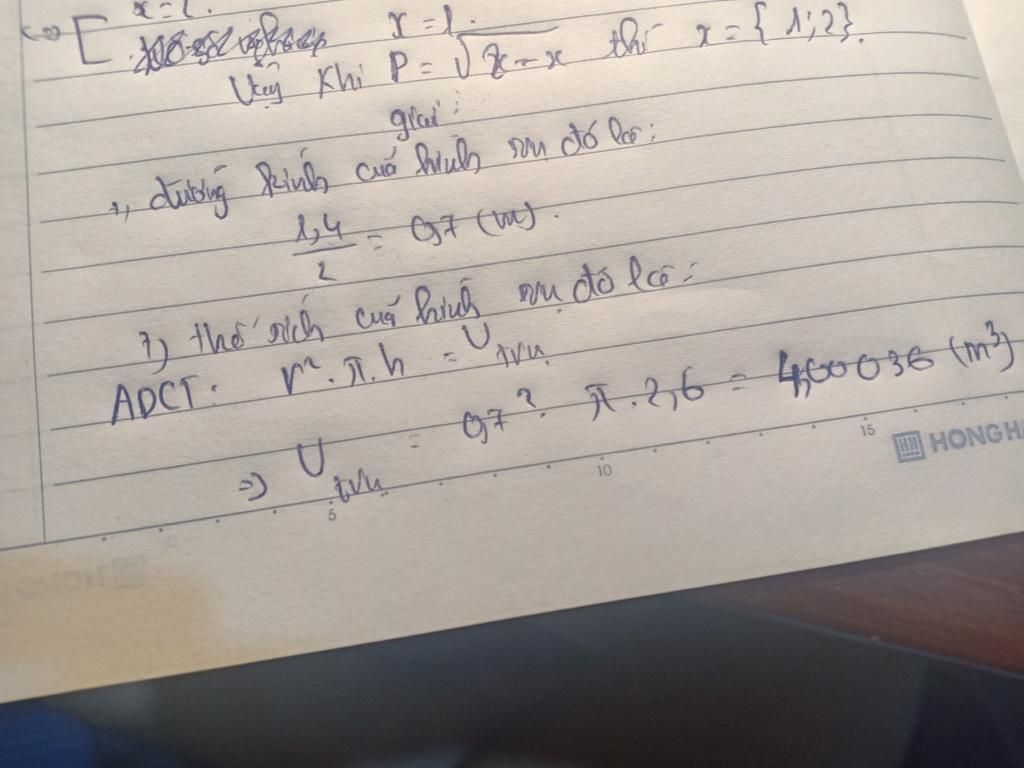 x = 2.
⇔ [ x = 1.
Vậy khi P = √2x-x thì x = { 1; 2}.
giải:
+, đường kính của hình trụ đó là:
1,4/2 = 0,7 (m).
+) thể tích của hình trụ đó là:
ADCT: r². π. h = V trụ
=> V trụ = 0,7². π. 2,6 = 4,00036 (m³)
5 10 15 HONGHA